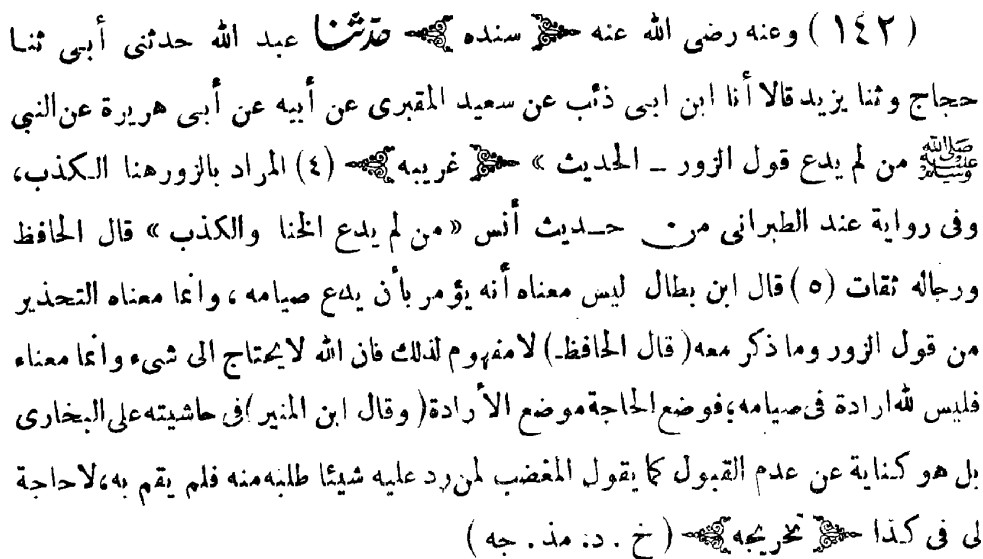 ( ١٤٢ ) وعنه رضى الله عنه ﴿ سنده ﴾ حدّثنا عبد الله حدثنى أبى ثنا
حجاج وثنا يزيد قالا أنا ابن ابى ذئب عن سعيد المقبرى عن أبيه عن أبى هريرة عن النبي
ﷺ من لم يدع قول الزور ــ الحديث » ﴿ غريبه ﴾ (٤) المراد بالزور هنا الكذب،
وفى رواية عند الطبرانى من حديث أنس « من لم يدع الخنا والكذب » قال الحافظ
ورجاله ثقات (٥) قال ابن بطال ليس معناه أنه يؤمر بأن يدع صيامه، وانما معناه التحذير
من قول الزور وما ذكر معه (قال الحافظ) لا مفهوم لذلك فان الله لا يحتاج الى شىء وانما معناه
فليس لله ارادة فى صيامه، فوضع الحاجة موضع الأرادة (وقال ابن المنير) فى حاشيته على البخارى
بل هو كناية عن عدم القبول كما يقول المغضب لمن رد عليه شيئا طلبه منه فلم يقم به، لاحاجة
لى فى كذا ﴿ تخريجه ﴾ ( خ . د. مذ . جه )